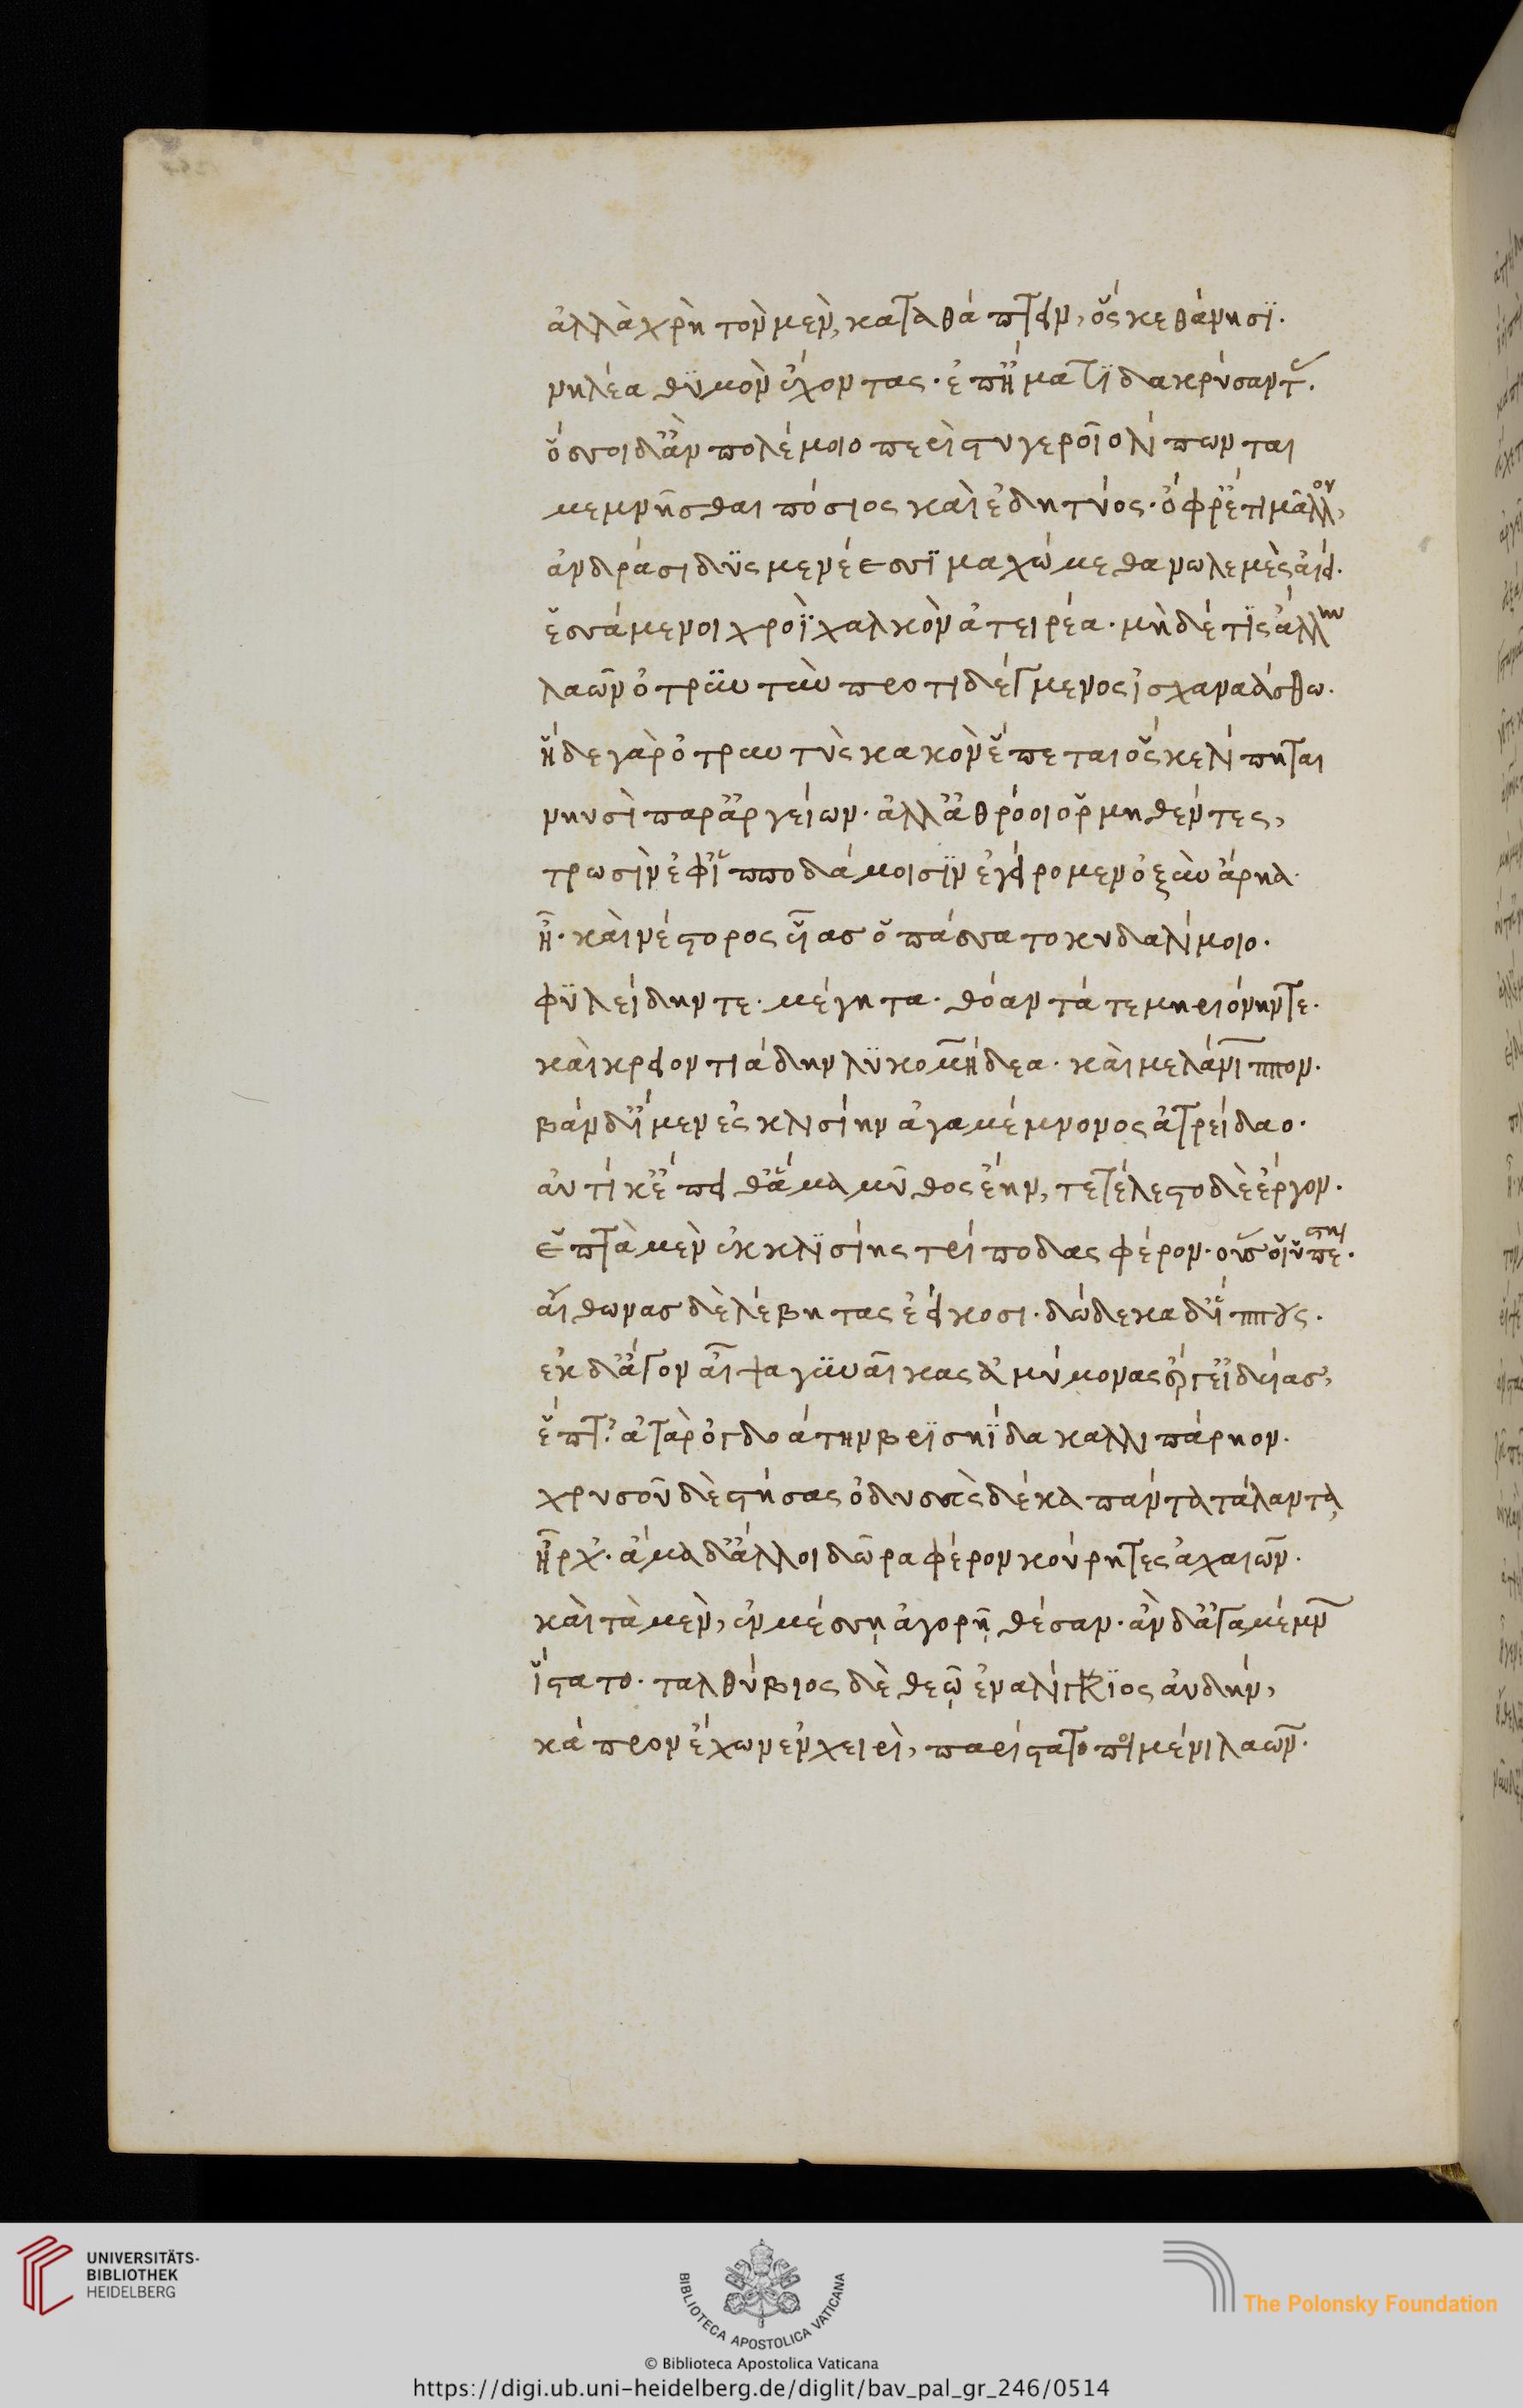 ἀλλὰ χρὴ τὸν μὲν, καταθάπτειν, ὅς κε θάνησϊ.
νηλέα θϋμὸν ἔχοντας. ἐπ' ἤματϊ δακρύσαντες.
ὅσσοι δ' ἂν πολέμοιο περὶ στυγεροῖο λίπωνται
μεμνῆσθαι πόσιος καὶ ἐδητύος. ὄφρ' ἔτι μᾶλλον,
ἀνδράσι δϋςμενέεσσϊ μαχώμεθα νωλεμὲς αἰεί.
ἑσσάμενοι χροῒ χαλκὸν ἀτειρέα. μὴ δέ τϊς ἄλλην
λαῶν ὀτρϋντὺν προτιδέγμενος ἰσχαναάσθω.
ἥδε γὰρ ὀτρυντὺς κακὸν ἕπεται ὅς κε λίπηται
νηυσὶ παρ' ἀργείων. ἀλλ' ἀθρόοι ὁρμηθέντες,
τρωσὶν ἐφ' ἱπποδάμοισϊν ἐγείρομεν ὀξὺν ἄρηα.
ἦ. καὶ νέστορος υἷας ὀπάσσατο κυδαλίμοιο.
φϋλείδην τε. μέγητα. θόαντά τε μηριόνην τε.
καὶ κρειοντιάδην λϋκομήδεα. καὶ μελάνιππον.
βὰν δ' ἴμεν ἐς κλισίην ἀγαμέμνονος ἀτρείδαο.
αὐτίκ' ἔπειθ' ἅμα μῦθος ἔην, τετέλεστο δὲ ἔργον.
ἑπτὰ μὲν ἐκ κλϊσίης τρίποδας φέρον. οὕς οἱ ὑπέστη.
αἴθωνας δὲ λέβητας ἐείκοσι. δώδεκα δ' ἵππους.
ἐκ δ' ἄγον αἶψα γϋναῖκας ἀμύμονας ἔργ' εἰδυίας,
ἕπτ'. ἀτὰρ ὀγδοάτην βρϊσηΐδα καλλιπάρηον.
χρυσοῦ δὲ στήσας ὀδυσσεὺς δέκα πάντα τάλαντα,
ἦρχ'. ἅμα δ' ἄλλοι δῶρα φέρον κούρητες ἀχαιῶν.
καὶ τὰ μὲν, ἐν μέσσῃ ἀγορῇ θέσαν. ἂν δ' ἀγαμέμνων
ἵστατο. ταλθύβιος δὲ θεῷ ἐναλίγκϊος αὐδὴν,
κάπρον ἔχων ἐν χειρὶ, παρίστατο ποιμένι λαῶν.
UNIVERSITÄTS-
BIBLIOTHEK
HEIDELBERG
BIBLIOTECA APOSTOLICA VATICANA
The Polonsky Foundation
© Biblioteca Apostolica Vaticana
https://digi.ub.uni-heidelberg.de/diglit/bav_pal_gr_246/0514